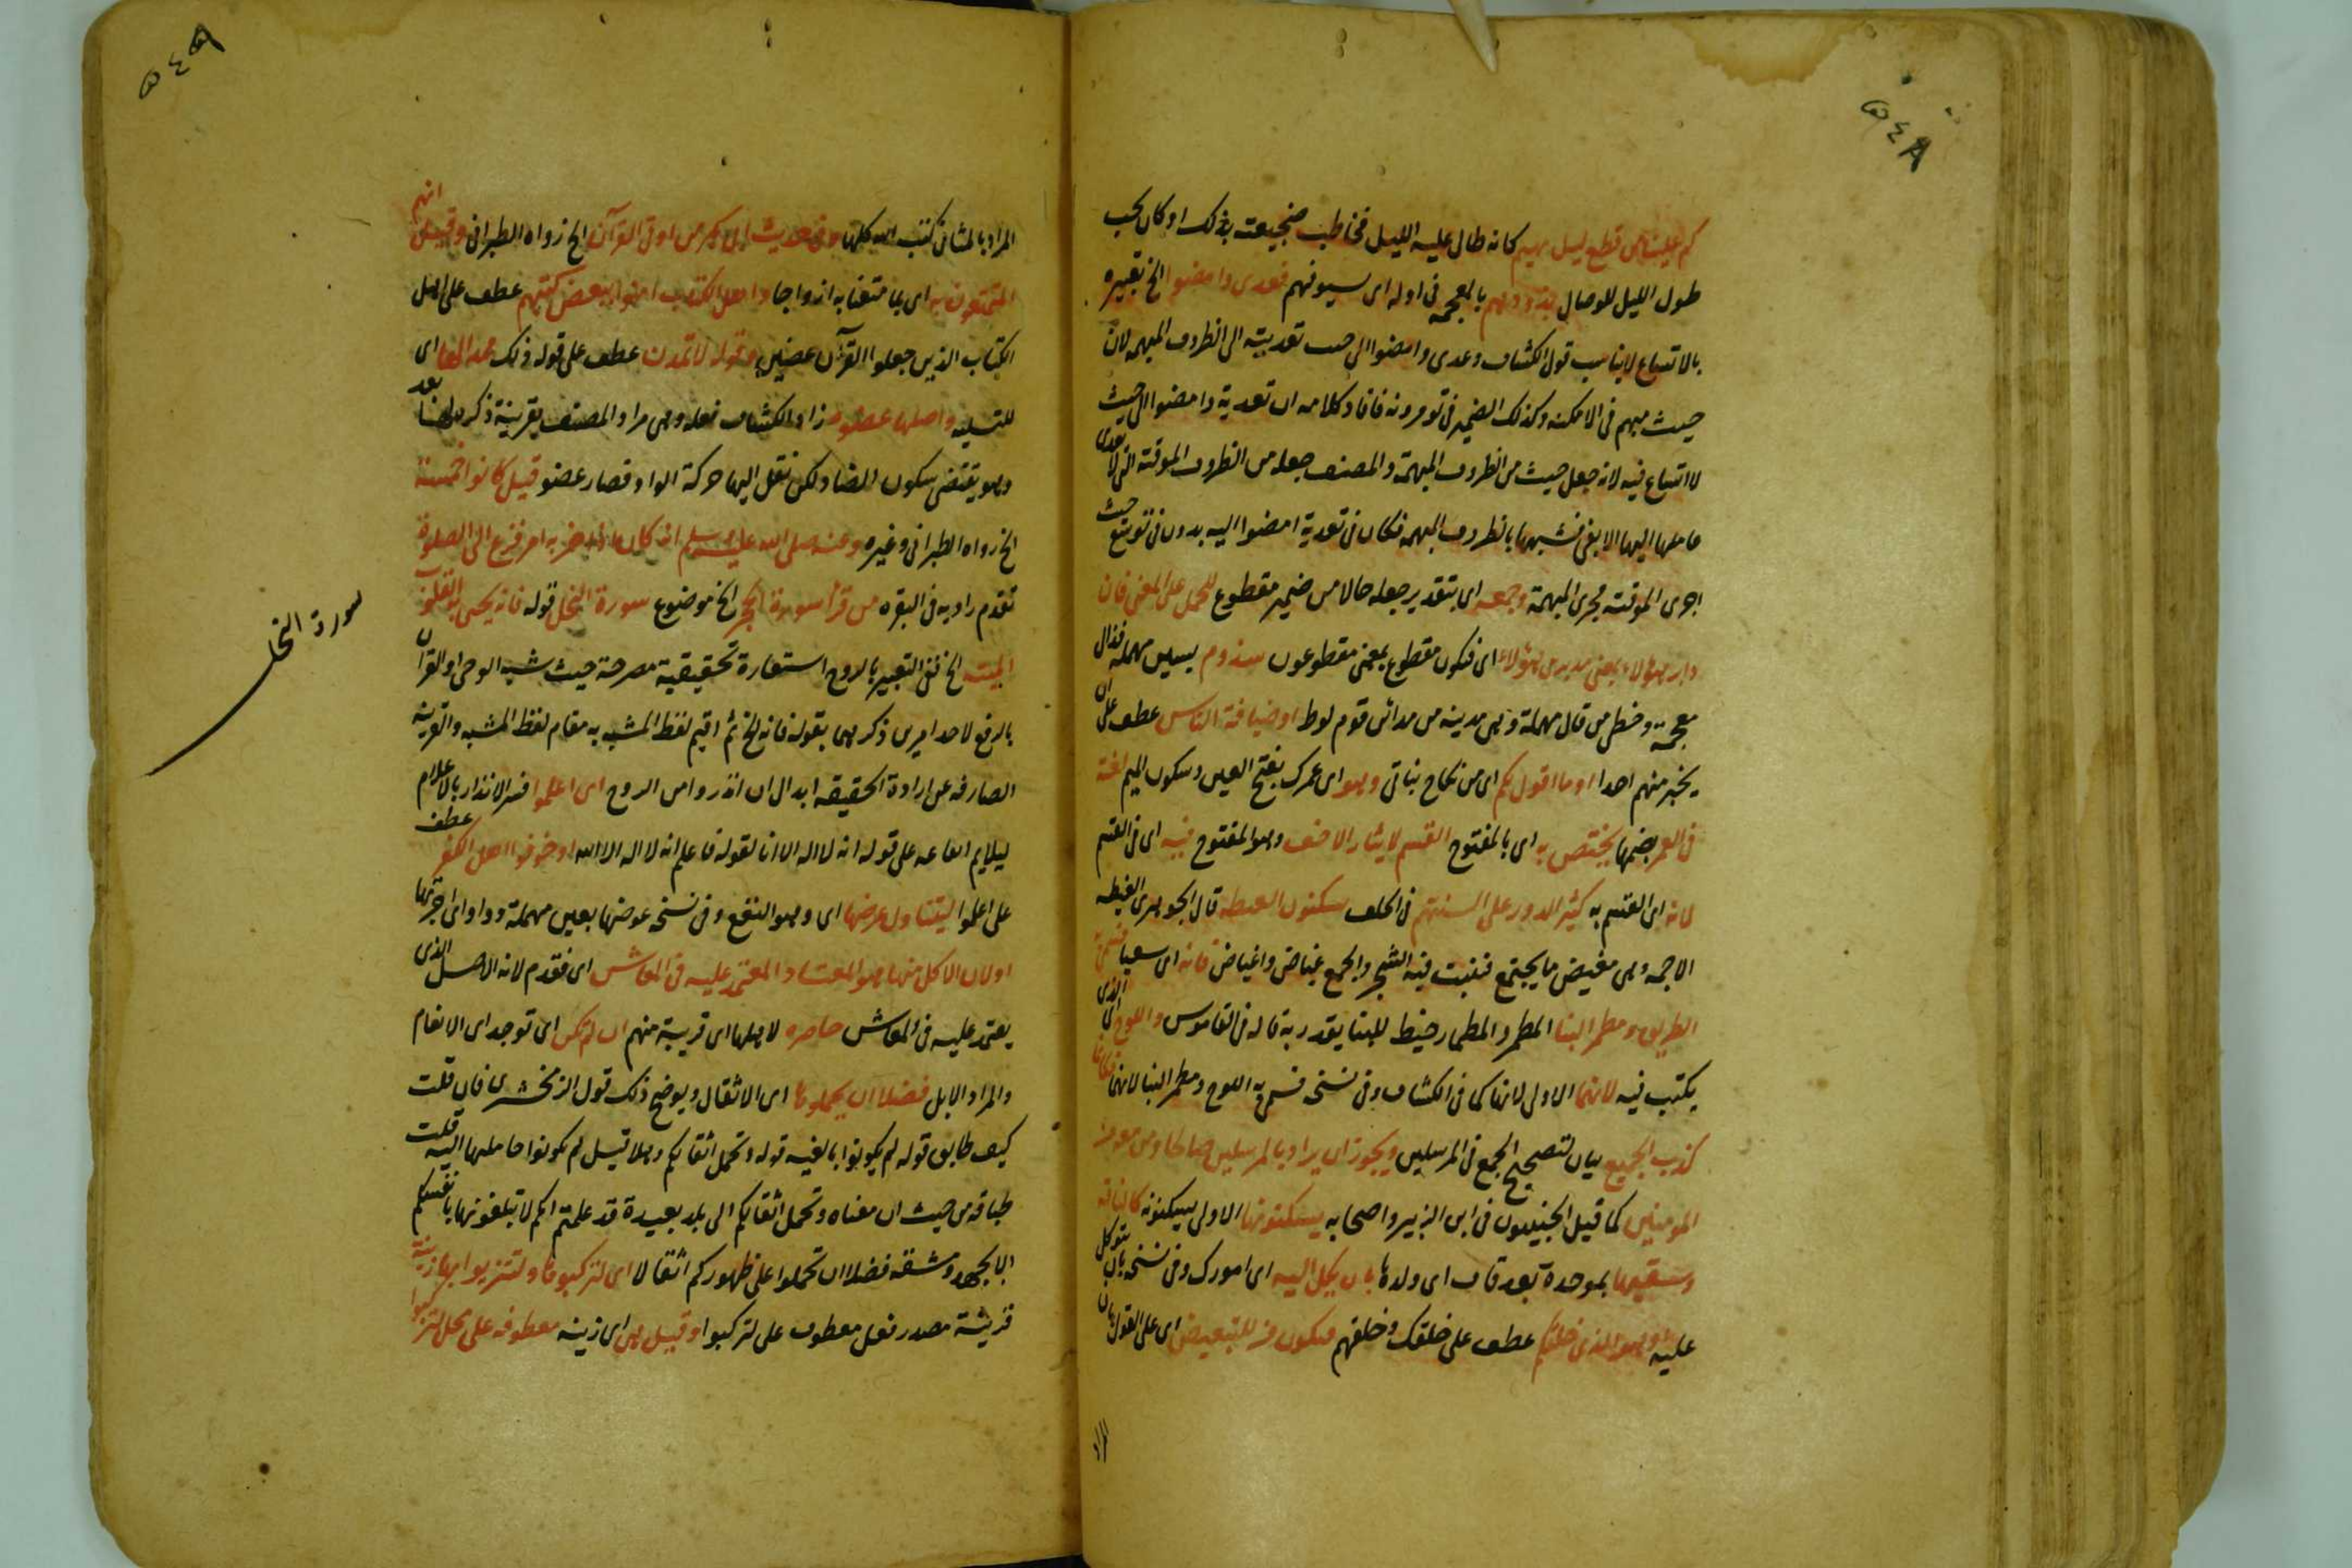 ٥٤٨
كم علينا من قطع ليل بهيم كانه طال عليه الليل فخاطب ضجيعته بذلك او كان يحب
طول الليل للوصال بالمعجمة فى اوله اى سيوفهم فعدى وامضوا الخ تعبيره
بالاتساع لايناسب قول الكشاف وعدى وامضوا الى حيث تعديته الى الظروف المبهمه لان
حيث مبهم فى الامكنه وكذلك الضمير فى تومرونه فافاد كلامه ان تعدية وامضوا الى حيث
لا اتساع فيه لانه جعل حيث من الظروف المبهمة والمصنف جعله من الظروف الموقتة التى لا تعدى
عاملها اليها الا بفى تشبيها بالظروف المبهمه فكان فى تعدية امضوا اليه بدون فى توسع حيث
اجرى الموقته مجرى المبهمة وجمعه اى بتقدير جعله حالا من ضمير مقطوع للحمل على المعنى فان
دابر هؤلاء بمعنى مدبرى هؤلاء اى فيكون مقطوع بمعنى مقطوعون سذوم بسين مهملة فذال
معجمة وخطى من قال مهملة وهى مدينه من مدائن قوم لوط او ضيافة الناس عطف على ان
يخبر منهم احدا او ما اقول لكم اى من نكاح بناتى وهو اى عمرك بفتح العين وسكون الميم لغة
فى العمر بضمها يختص به اى بالمفتوح القسم لايثار الاخف وهو المفتوح فيه اى فى القسم
لانه اى القسم به كثير الدور على السنتهم فى الحلف يسكنون الغيطه قال الجوهرى الغيطه
الاجمه وهى مغيض ما يجتمع فينبت فيه الشجر والجمع غياض واغياض فانه اى سميا
الطريق ومطمر البنا المطمر والمطمار خيط للبنا يقدر به قاله فى القاموس واللوح اى الذى
يكتب فيه لانهما الاولى لانها كما فى الكشاف وفى نسخه فسمى به اللوح ومطمر البنا لانهما
كذب الجميع بيان لتصحيح الجمع فى المرسلين ويجوز ان يراد بالمرسلين صالحا ومن معه من
المومنين كما قيل الخبيبون فى ابن الزبير واصحابه يسكنونها الاولى يسكنونه كالناقة
وسقيها بموحدة بعد قاف اى ولدها بان يكل اليه اى امورك وفى نسخه بان يتوكل
عليه او هو الذى خلقكم عطف على خلقك وخلقهم فيكون من للتبعيض اى على القول بان
٥٤٩
المراد بالمثانى كتب الله كلها وفى حديث ابى بكر من اوتى القرآن الخ رواه الطبرانى وقيل انهم
به اى بما متعنا به ازواجا واهل الكتاب امنوا ببعض كتبهم عطف على اهل
الكتاب الذين جعلوا القرآن عضين وقوله لاتمدن عطف على قوله ذلك ممدا لها اى
للتسليه واصلها عضوه زاد الكشاف فعله وهى مراد المصنف بقرينة ذكر بعد
وهو يقتضى سكون الضاد لكن نقل اليها حركة الواو فصار عضو قيل كانوا خمسة
الخ رواه الطبرانى وغيره وعنه صلى الله عليه وسلم انه كان اذا حزبه امر فزع الى الصلوة
تقدم راويه فى البقره من قرأ سورة الحجر الخ موضوع سورة النحل قوله فانه يحيى به القلوب
الميتة الخ ففى التعبير بالروح استعارة تحقيقية مصرحة حيث شبه الوحى او القران
بالروح لاحد امرين ذكرهما بقوله فانه الخ ثم اقيم لفظ المشبه به مقام لفظ المشبه والقرينه
الصارفه عن ارادة الحقيقه ابدال ان انذروا من الروح اى اعلموا فسر الانذار بالاعلام
ليلايم ايقاعه على قوله انه لا اله الا انا لقوله فاعلم انه لا اله الا الله او خوفوا اهل الكفر عطف
على اعلموا ليتناول عرضها اى وهو النفع وفى نسخه عوضها بعين مهملة وواو اى اجرتها
اولان الاكل منها هو المعتاد المعتمد عليه فى المعاش اى فقدم لانه الاصل الذى
يعتمد عليه فى المعاش حاضره لاهلها اى قريبة منهم ان لم تكن اى توجد اى الانعام
والمراد الابل فضلا ان تحملوها اى الاثقال ويوضح ذلك قول الزمخشرى فان قلت
كيف طابق قوله لم يكونوا بالغيه قوله وتحمل اثقالكم وهلا قيل لم تكونوا حامليها اليه قلت
طباقه من حيث ان معناه وتحمل اثقالكم الى بلد بعيدة قد علمتم انكم لا تبلغونها بانفسكم
الا بجهد ومشقه فضلا ان تحملوا على ظهوركم اثقالا اى لتركبوها ولتتزينوا بها زينة
فزينة مصدر فعل معطوف على لتركبوا وقيل هى اى زينه معطوفه على محل لتركبوا
سورة النحل